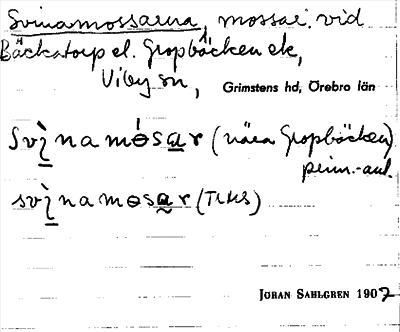 Svinamossarna, mossar vid
Bäckatorp el. Gropbäcken ek,
Viby sn, Grimstens hd, Örebro län
svì̠namɵ́sa̠r (nära Gropbäcken)
svì̠namɵsa̰r (TLHS)
JÖRAN SAHLGREN 1907